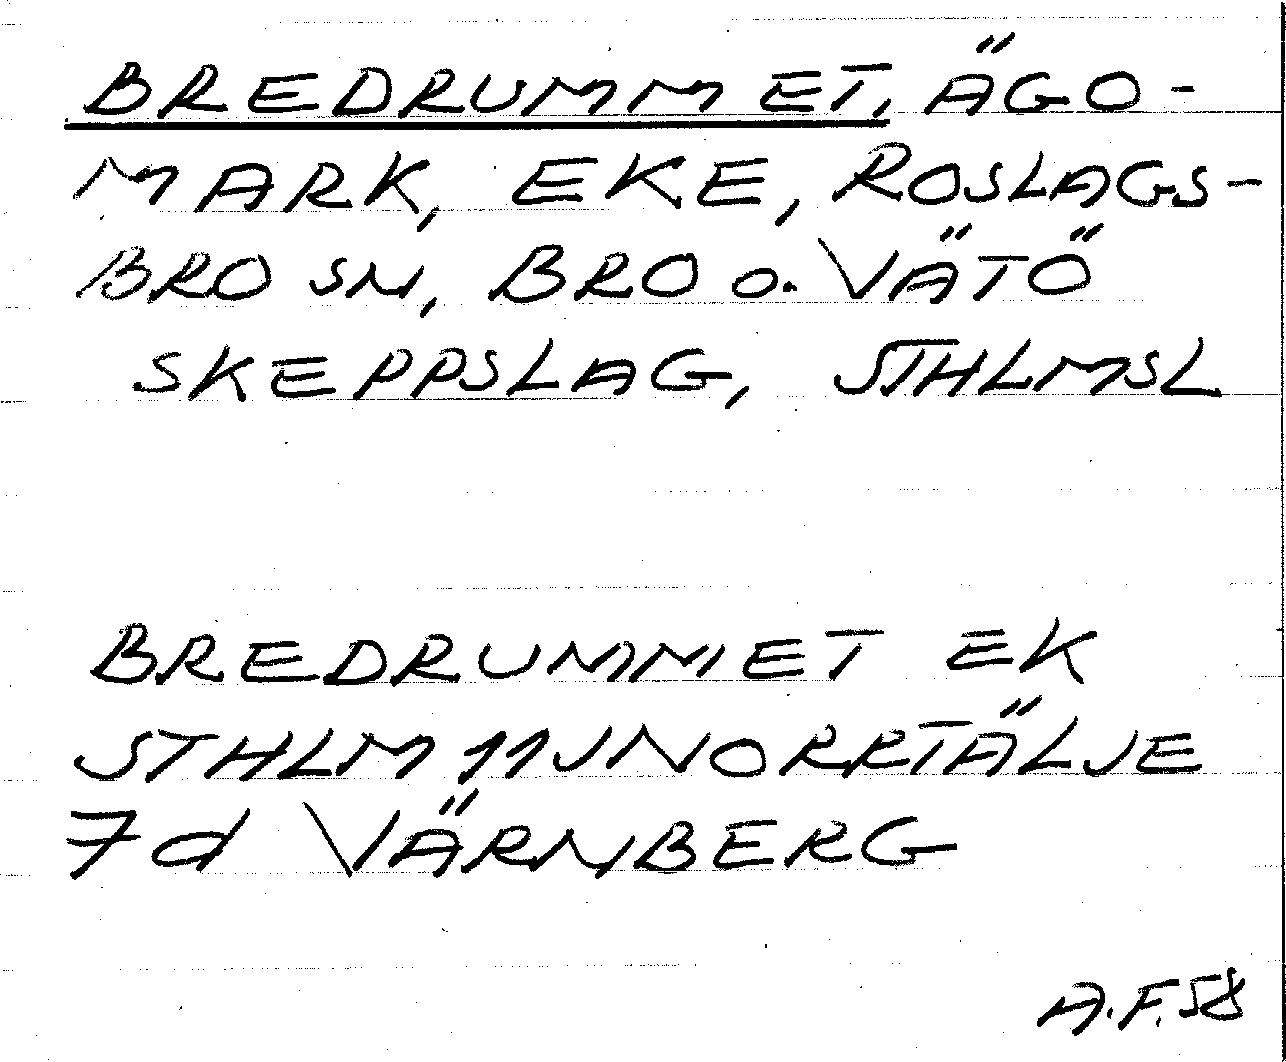 BREDRUMMET, ÄGO-
MARK, EKE, ROSLAGS-
BRO SN, BRO o. VÄTÖ
SKEPPSLAG, STHLMSL
BREDRUMMET EK
STHLM 11J NORRTÄLJE
7d VÄRNBERG
A.F.58